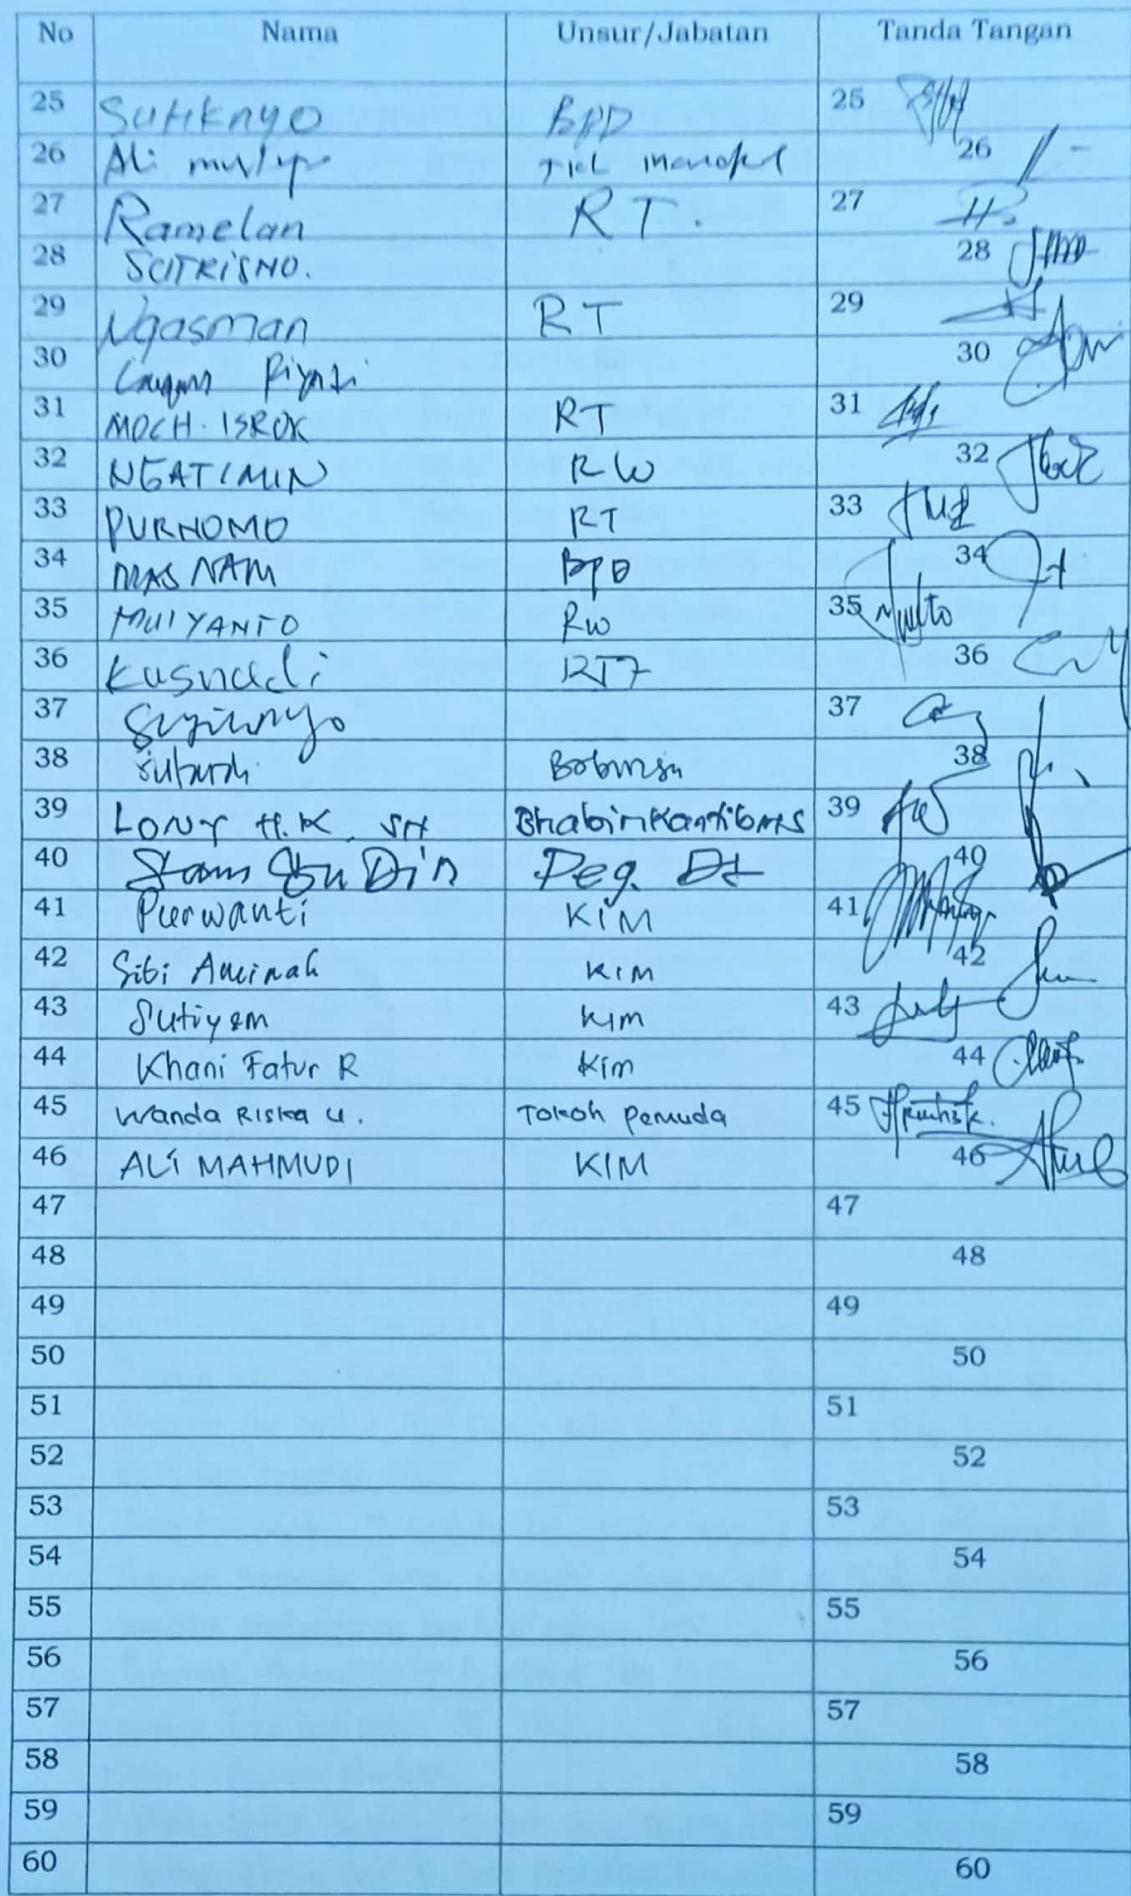 No Nama Unsur/Jabatan Tanda Tangan
25 Sutiknyo BPD 25
26 Ali 26
27 Ramelan RT. 27
28 SUTRISNO. 28
29 Ngasman RT 29
30 30
31 MOCH. ISROK RT 31
32 NGATIMIN RW 32
33 PURNOMO RT 33
34 MASNAM BPD 34
35 MULYANTO RW 35
36 Kusnadi RT7 36
37 37
38 Babinsa 38
39 LONY H.K. SH Bhabinkamtibmas 39
40 Peg. 40
41 Purwanti KIM 41
42 Siti Aminah KIM 42
43 Sutiyem KIM 43
44 Khani Fatur R Kim 44
45 Wanda Riska U. Tokoh Pemuda 45
46 ALI MAHMUDI KIM 46
47 47
48 48
49 49
50 50
51 51
52 52
53 53
54 54
55 55
56 56
57 57
58 58
59 59
60 60